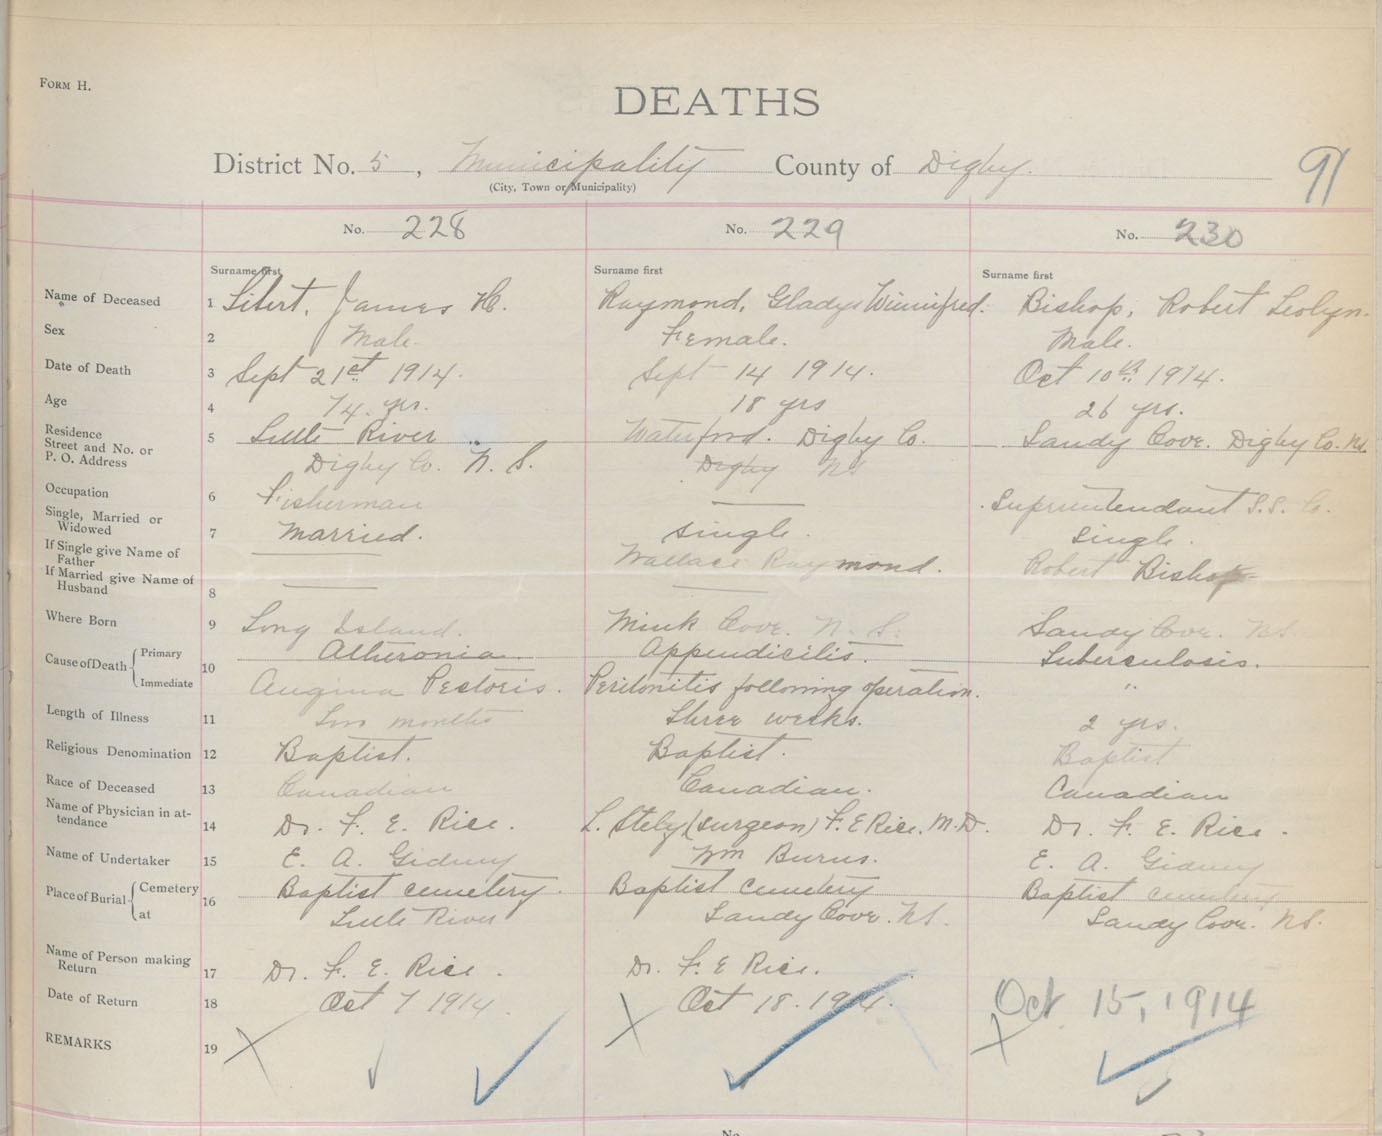 FORM H.
DEATHS
District No. 5, Municipality County of Digby.
(City, Town or Municipality)
91
No. 228 No. 229 No. 230
Surname first Surname first Surname first
Name of Deceased 1 James H. Raymond, Gladys Winnifred. Bishop, Robert Leslyn.
Sex 2 Male Female. Male.
Date of Death 3 Sept 21st 1914. Sept 14 1914. Oct 10th 1914.
Age 4 74 yrs. 18 yrs 26 yrs.
Residence
Street and No. or 5 Little River Waterford. Digby Co. Sandy Cove. Digby Co. N.S.
P. O. Address Digby Co. N. S. Digby NS
Occupation 6 Fisherman Supruntendant S.S. Co.
Single, Married or
Widowed 7 Married. Single. Single.
If Single give Name of
Father Wallace Raymond. Robert Bishop
If Married give Name of
Husband 8
Where Born 9 Long Island. Mink Cove. N. S. Sandy Cove. NS.
Cause of Death Primary 10 Atheronia. Appendicitis. Tuberculosis.
Immediate Angina Pectoris. Peritonitis following operation. "
Length of Illness 11 Two months Three weeks. 2 yrs.
Religious Denomination 12 Baptist. Baptist. Baptist
Race of Deceased 13 Canadian Canadian. Canadian
Name of Physician in at-
tendance 14 Dr. F. E. Rice. (surgeon) F. E Rice. M.D. Dr. F. E. Rice.
Name of Undertaker 15 E. A. Gidney Wm Burns. E. A. Gidney
Place of Burial Cemetery 16 Baptist cemetery. Baptist cemetery Baptist cemetery
at Little River Sandy Cove. NS. Sandy Cove. NS.
Name of Person making
Return 17 Dr. F. E. Rice. Dr. F. E Rice.
Date of Return 18 Oct 7 1914. Oct 18. 1914. Oct 15, 1914
REMARKS 19
No.